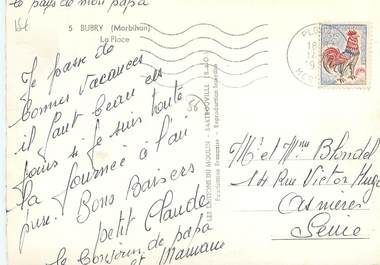 le pays de mon papa
5 BUBRY (Morbihan)
La Place
Je passe de
bonnes vacances
il faut beau en
tours si je suis toute
la journée à l'air
pure. Bons Baisers
petit Claude
le bonjour de papa
et Mamane
56
LES EDITIONS DU MOULIN - SARTROUVILLE (S.-&-O.)
Fabrication Française - Reproduction Interdite
18
12
Mr et Mme Blondel
14 Rue Victor Hugo
Asnieres
Seine